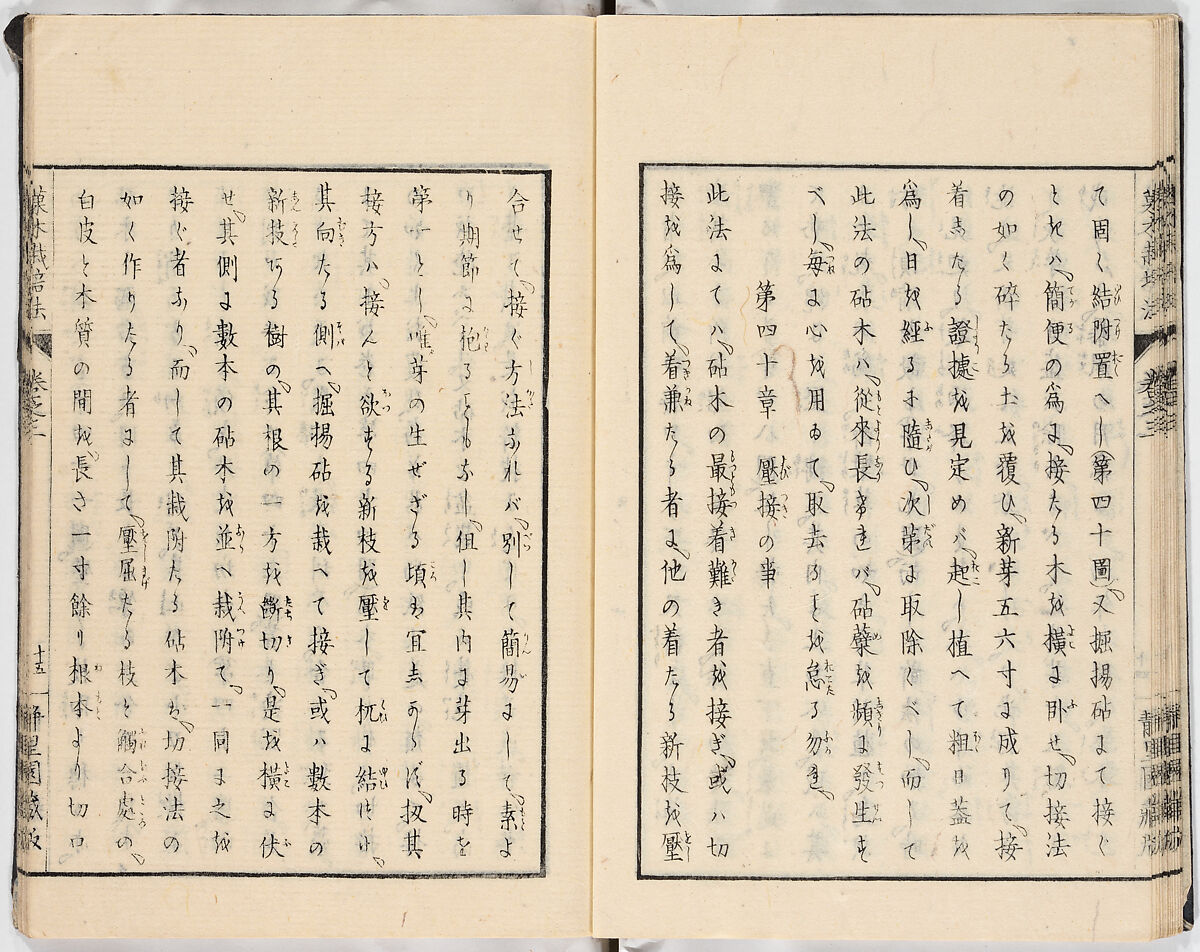 て固く結附置べし(第四十圖)又掘揚砧にて接ぐ
ときハ簡便の爲に接たる木を横に臥せ切接法
の如く碎たる土を覆ひ新芽五六寸に成りて接
着したる證據を見定めバ起し植へて粗日葢を
爲し日を經るに隨ひ次第に取除くべし而して
此法の砧木ハ從來長きれバ砧蘖を頻に發生す
べし毎に心を用ゐて取去ることを怠る勿れ
第四十章 壓接の事
此法にてハ砧木の最接着難き者を接ぎ或ハ切
接を爲して着兼たる者に他の着たる新枝を壓
合せて接ぐ方法なれバ別して簡易にして素よ
り期節に抱ることなし但し其内に芽出る時を
第一とし唯芽の生ぜざる頃も宜しからず扨其
接方ハ接んと欲する新枝を壓して杭に結付け
其向たる側へ掘揚砧を栽へて接ぎ或ハ數本の
新枝ある樹の其根の一方を斷切り是を横に伏
せ其側に數本の砧木を並へ栽附て一同に之を
接ぐ者あり而して其栽附たる砧木も切接法の
如く作りたる者にして壓屈たる枝と觸合處の
白皮と木質の間を長さ一寸餘り根本より切口
菓木栽培法 卷之三
十五 静里園藏版